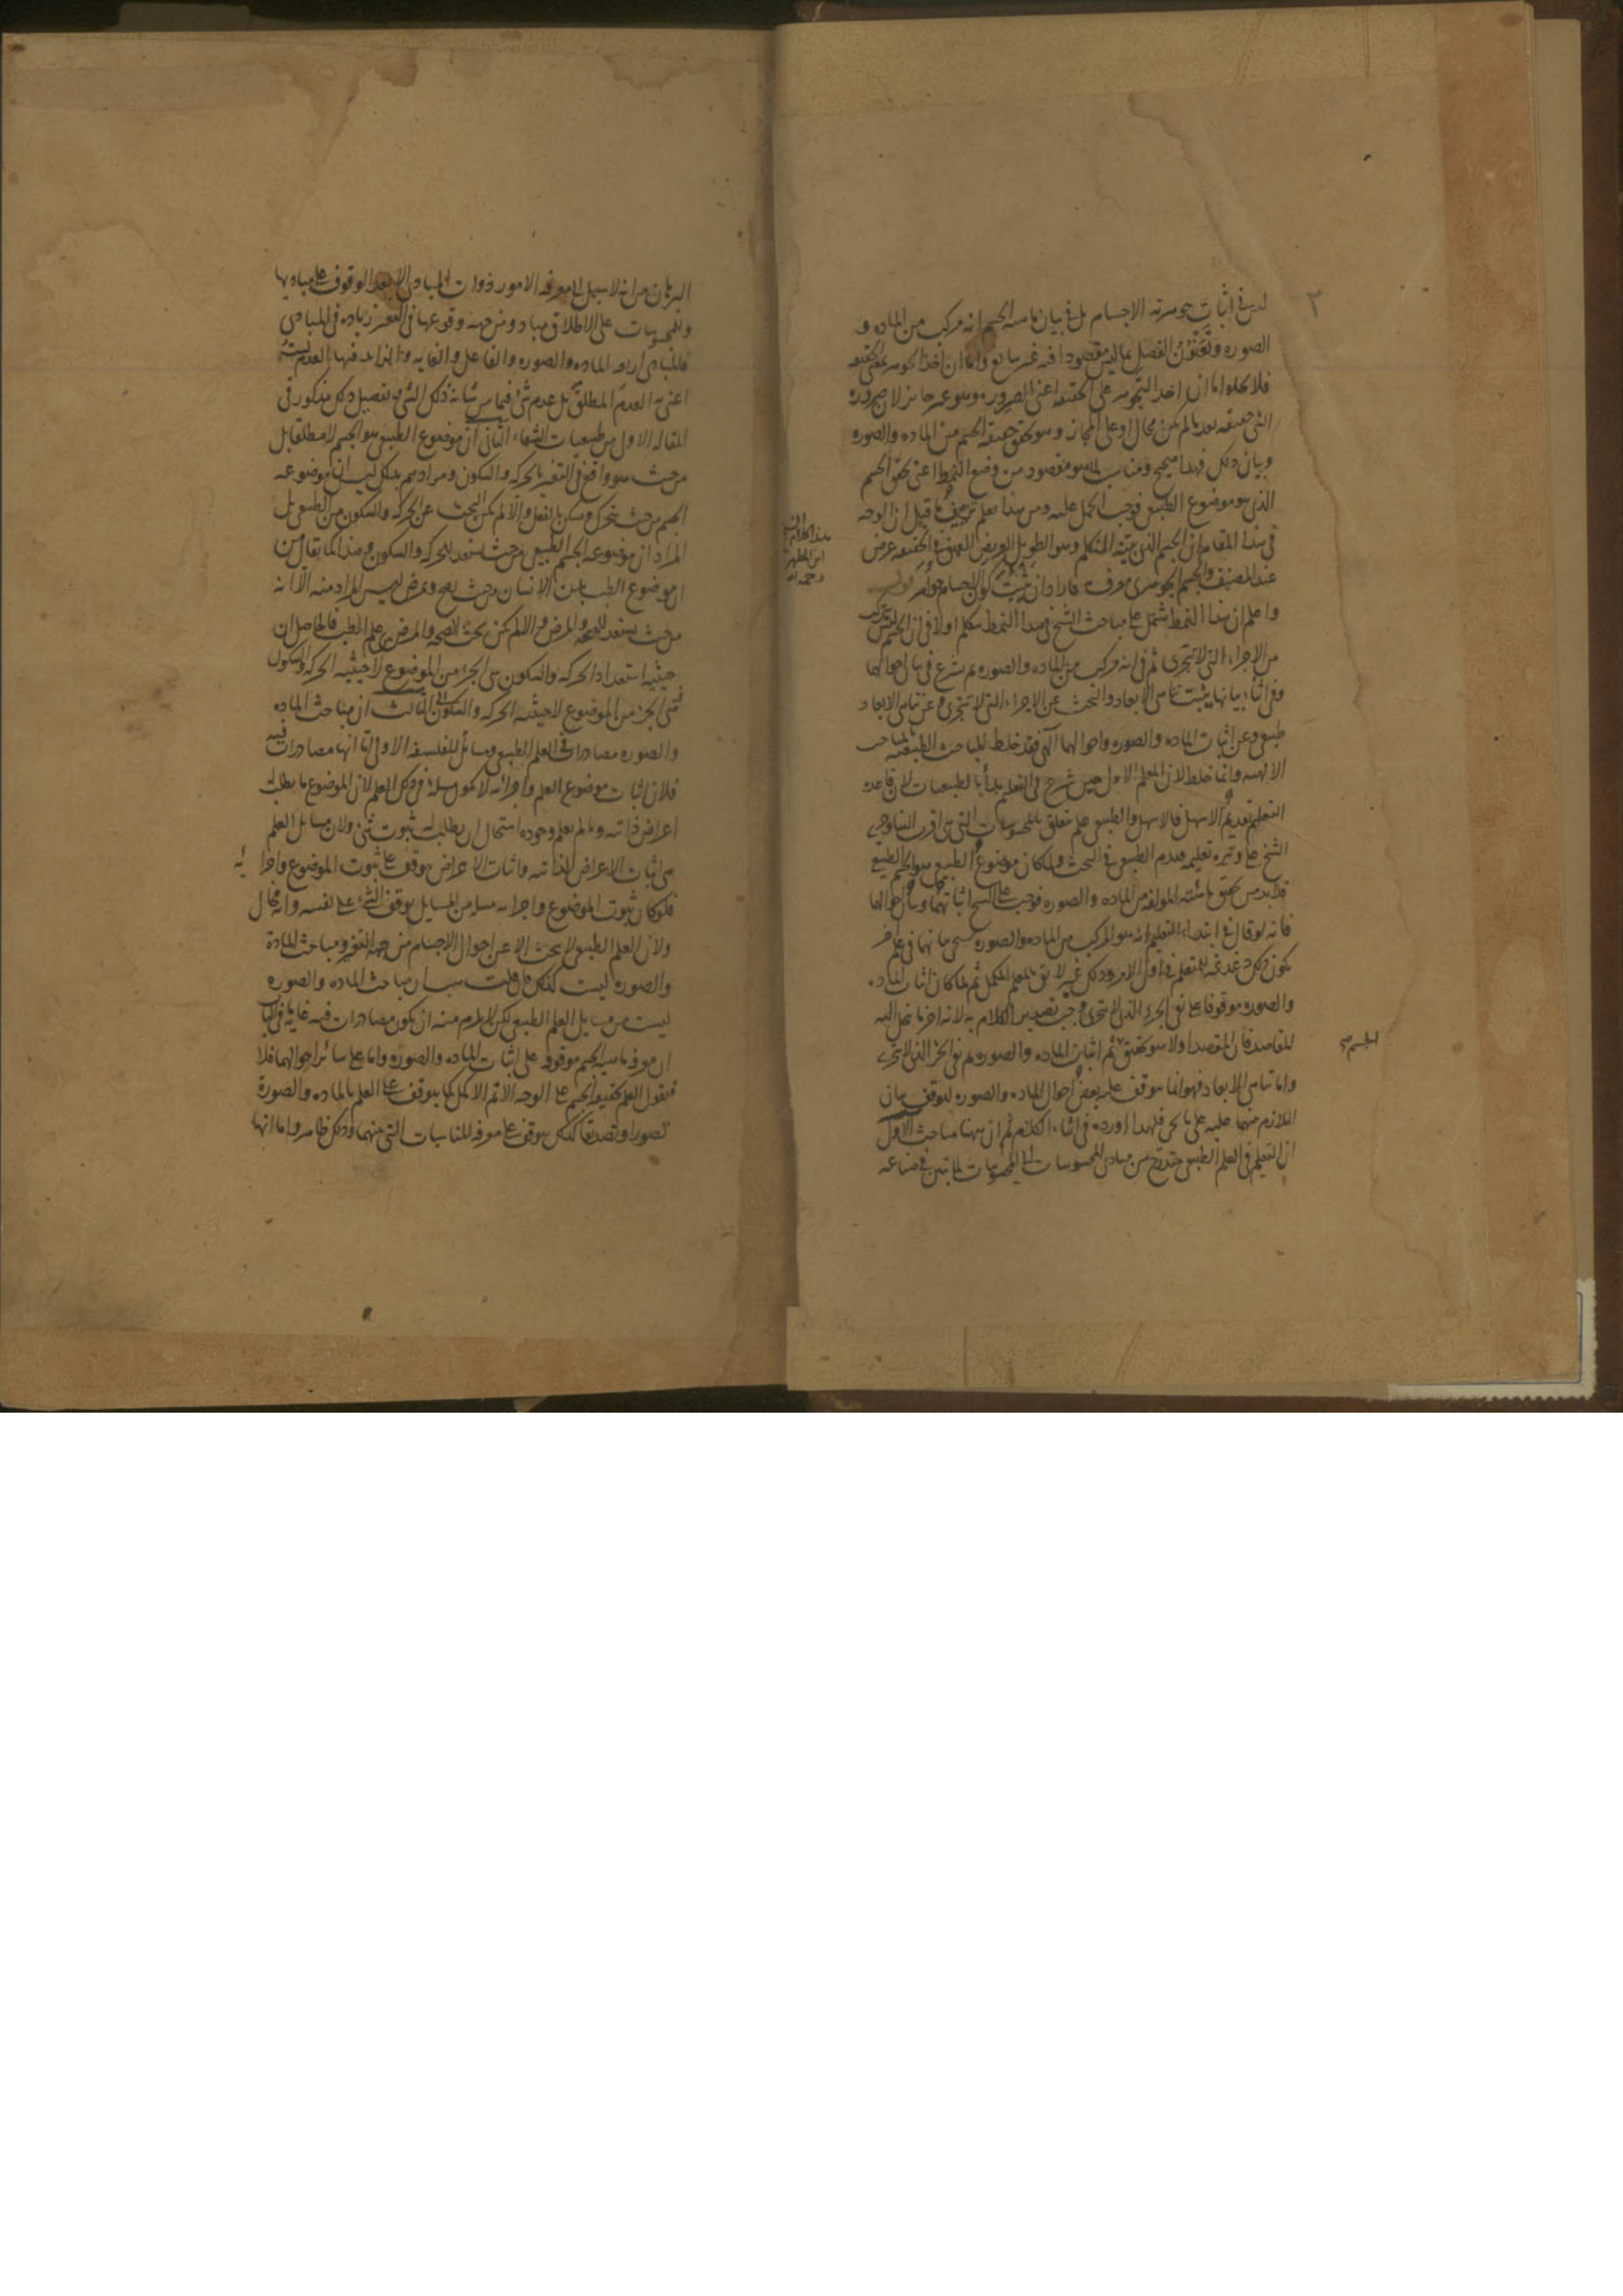 ليس في اثبات جوهرية الاجسام بل في بيان ماهية الجسم انه مركب من المادة و
الصورة وتعنون الفصل بما ليس مقصودا فيه غير سائغ واما ان اخذ الجوهر بمعنى الحقيقة
فلا يخلوا اما ان اخذ التجوهر على الحقيقة اعنى الصيرورة وهو غير جائز لان صيرورة
الشى حقيقة بعد ما لم يكن محال او على المجاز وهو تحقق حقيقة الجسم من المادة والصورة
وبيان ذلك فهذا صحيح ومناسب لما هو مقصود من وضع النمط اعنى تحقق الجسم
الذى هو موضوع الطبيعى فوجب الحمل عليه ومن هذا يعلم تزييف ما قيل ان الوجه
فى هذا المقام ان الجسم الذى يثبته المتكلم وهو الطويل العريض العميق فى الحقيقة عرض
عند المصنف والجسم الجوهرى معرفه فاراد ان يثبت كون الاجسام جواهر قوله
هذا كلام الشيخ
ابن المطهر
رحمه الله
واعلم ان هذا النمط يشتمل على مباحث الشيخ فى هذا النمط يتكلم اولا فى ان الجسم ليس يتركب
من الاجزاء التى لا تتجزى ثم فى انه مركب من المادة والصورة ثم يشرع فى بيان احوالهما
وفى اثناء بيانها يثبت تناهى الابعاد والبحث عن الاجزاء التى لا تتجزى وعن تناهى الابعاد
طبيعى وعن اثبات المادة والصورة واحوالهما الهى فقد خلط المباحث الطبيعية بالمباحث
الالهية وانما خلط لان المعلم الاول حين شرع فى التعليم بدأ بالطبيعيات لان قاعدة
التعليم تقديم الاسهل فالاسهل والطبيعى علم متعلق بالمحسوسات التى هى اقرب الينا وجرى
الشيخ على وتيرة تعليمه فقدم الطبيعى فى البحث ولما كان موضوع الطبيعى هو الجسم الطبيعى
فلا بد من تحقق ماهيته المؤلفة من المادة والصورة فوجب على الشيخ اثباتهما وبيان احوالهما
فانه لو قال فى ابتداء التعليم انه هو المركب من المادة والصورة سيجى بيانهما فى علم اخر
يكون ذلك دغدغة للمتعلم فى اول الامر وذلك غير لائق بالمعلم المكمل ثم لما كان اثبات المادة
والصورة موقوفا على نفى الجزء الذى لا يتجزى وجب تصدير الكلام به لانه اخر ما تنحل اليه
المقاصد فان المقصد اولا هو تحقيق ثم اثبات المادة والصورة ثم نفى الجزء الذى لا يتجزى
الجسم صح
واما تناهى الابعاد فهو انما يتوقف عليه بعض احوال المادة والصورة ليتوقف بيان
التلازم بينهما عليه على ما يجى فلهذا اورده فى اثناء الكلام ثم ان ههنا مباحث الاول
ان التعليم فى العلم الطبيعى متدرج من مبادى المحسوسات الى المحسوسات لما تبين فى صناعة
البرهان من انه لا سبيل الى معرفة الامور ذوات المبادى الا بعد الوقوف على مباديها
وللمحسوسات على الاطلاق مباد ومن جهة وقوعها فى التغير زيادة فى المبادى
فالمبادى اربعة المادة والصورة والفاعل والغاية والزائد فيها العدم لست
اعنى به العدم المطلق بل عدم شى فيما من شأنه ذلك الشى وتفصيل ذلك مذكور فى
المقالة الاولى من طبيعيات الشفاء الثانى ان موضوع الطبيعى هو الجسم لا مطلقا بل
من حيث هو واقع فى التغير بالحركة والسكون ومرادهم بذلك ليس ان موضوعه
الجسم من حيث يتحرك ويسكن بالفعل والا لم يكن البحث عن الحركة والسكون من الطبيعى بل
المراد ان موضوعه الجسم الطبيعى من حيث يستعد للحركة والسكون وهذا كما يقال من
ان موضوع الطب بدن الانسان من حيث يصح ويمرض ليس المراد منه الا انه
من حيث يستعد للصحة والمرض والا لم يكن بحث الصحة والمرض من علم الطب فالحاصل ان
حيثية استعداد الحركة والسكون هى الجزء من الموضوع لا حيثية الحركة والسكون
هى الجزء من الموضوع لا حيثية الحركة والسكون الثالث ان مباحث المادة
والصورة مصادرات فى العلم الطبيعى ومسائل للفلسفة الاولى اما انها مصادرات فيه
فلان اثبات موضوع العلم واجزائه لا يكون مسئلة فى ذلك العلم لان الموضوع ما يطلب
اعراض ذاتية وما لم يعلم وجوده استحال ان يطلب له ثبوت شى ولان مسائل العلم
هى اثبات الاعراض الذاتية واثبات الاعراض موقوف على ثبوت الموضوع واجزائه
فلو كان ثبوت الموضوع واجزائه مسئلة من المسائل يوقف الشى على نفسه وانه محال
ولان العلم الطبيعى لا يبحث الا عن احوال الاجسام من جهة التغير ومباحث المادة
والصورة ليست كذلك فان قلت هب ان مباحث المادة والصورة
ليست من مسايل العلم الطبيعى لكن لا يلزم منه ان يكون مصادرات فيه غاية ما فى الباب
ان معرفة ماهية الجسم موقوفة على اثبات المادة والصورة واما على سائر احوالهما فلا
فنقول العلم بحقيقة الجسم على الوجه الاتم الاكمل كما يتوقف على العلم بالمادة والصورة
تصورا وتصديقا كذلك يتوقف على معرفة المناسبات التى بينهما وذلك ظاهر واما انها